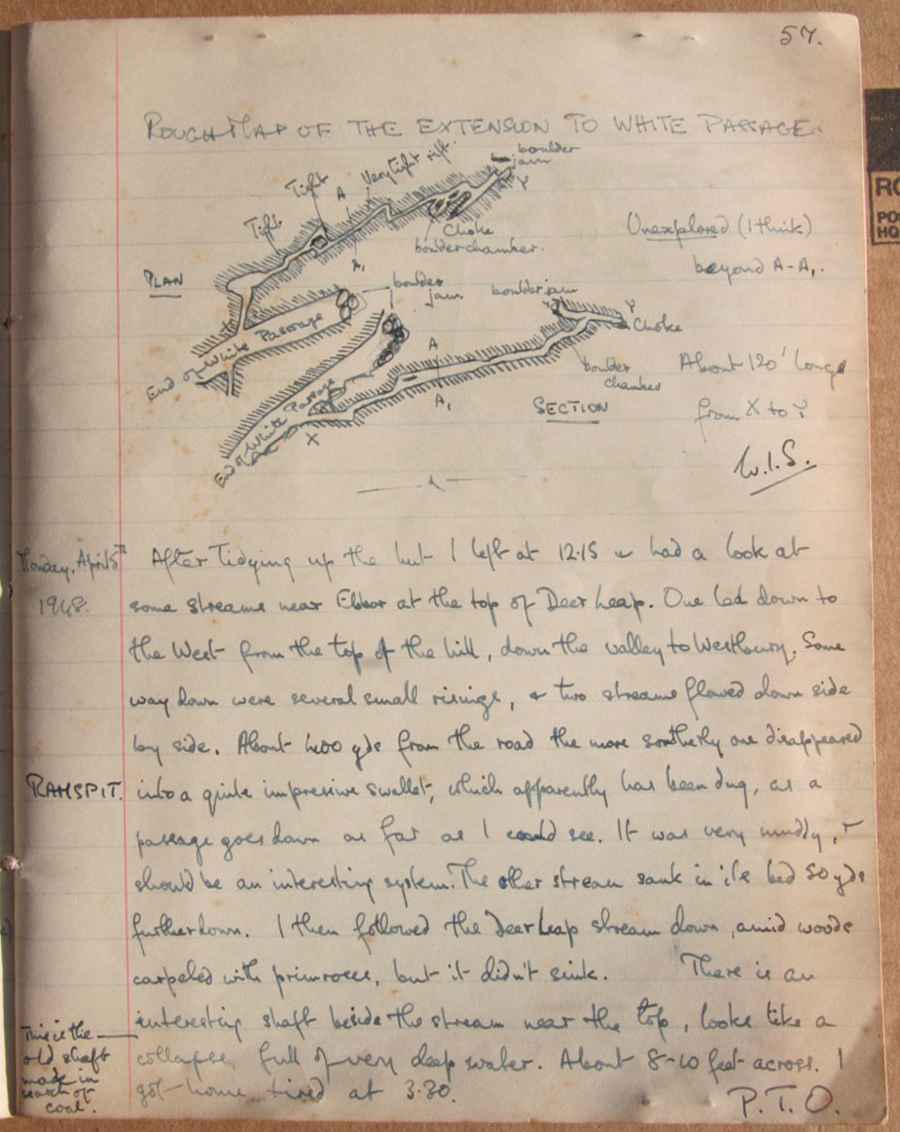 57.
ROUGH MAP OF THE EXTENSION TO WHITE PASSAGE.
boulder
jam
Very tight rift.
A
Tight
Tight
Y
Choke
boulder chamber.
Unexplored (I think)
beyond A-A₁.
A₁
PLAN
boulder
jam
boulder jam
Y
Choke
End of White Passage
A
boulder
chamber
About 120' long
A₁
SECTION
from X to Y
End of White Passage
X
W.I.S.
Monday, April 5th
1948.
After tidying up the hut I left at 12.15 & had a look at
some streams near Ebbor at the top of Deer Leap. One led down to
the West from the top of the hill, down the valley to Westbury. Some
way down were several small risings, & two streams flowed down side
by side. About 400 yds from the road the more southerly one disappeared
RAMSPIT.
into a quite impressive swallet, which apparently has been dug, as a
passage goes down as far as I could see. It was very muddy, &
should be an interesting system. The other stream sank in its bed 50 yds
further down. I then followed the Deer Leap stream down, amid woods
carpeted with primroses, but it didn't sink. There is an
interesting shaft beside the stream near the top, looks like a
This is the
old shaft
made in
search of
coal.
collapse full of very deep water. About 8-10 feet across. I
got home tired at 3.30.
P.T.O.
RO
PO
HO